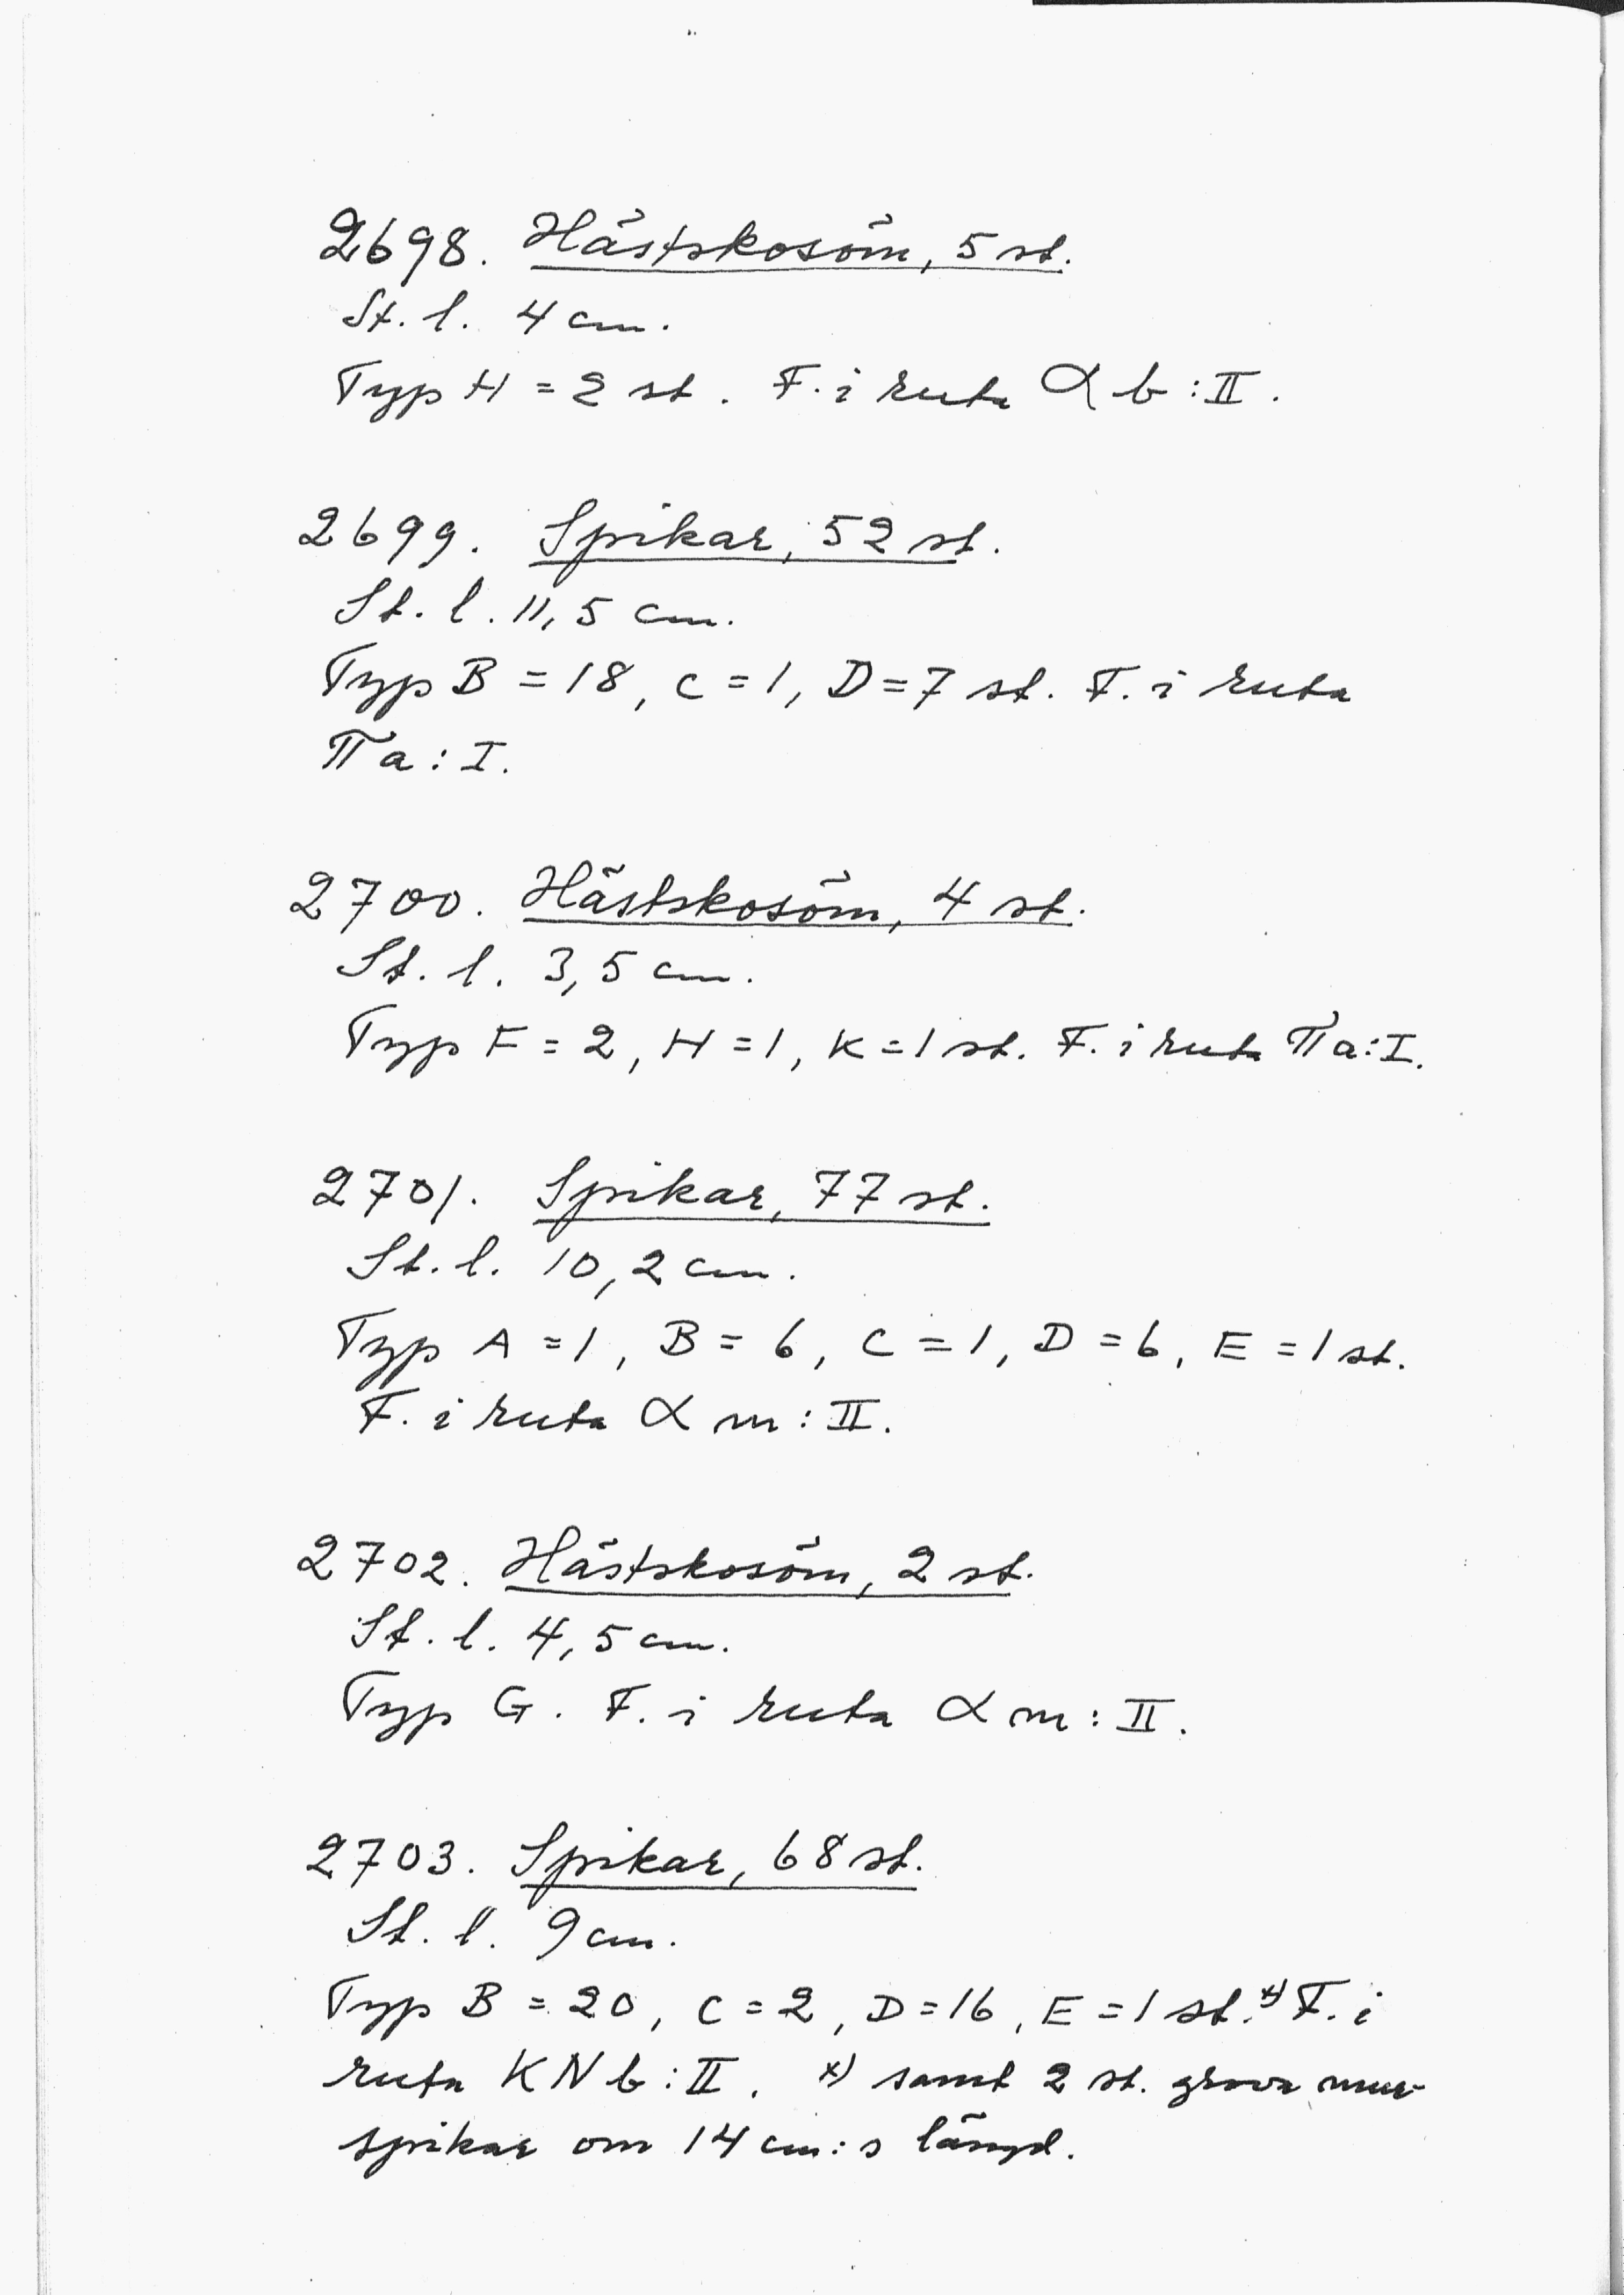 2698. Hästskosöm, 5 st.
St. l. 4 cm.
Typ H = 2 st. F. i ruta α b : II.
2699. Spikar, 52 st.
St. l. 11,5 cm.
Typ B = 18, C = 1, D = 7 st. F. i ruta
Π a : I.
2700. Hästskosöm, 4 st.
St. l. 3,5 cm.
Typ F = 2, H = 1, K = 1 st. F. i ruta Π a : I.
2701. Spikar, 77 st.
St. l. 10,2 cm.
Typ A = 1, B = 6, C = 1, D = 6, E = 1 st.
F. i ruta α m : II.
2702. Hästskosöm, 2 st.
St. l. 4,5 cm.
Typ G. F. i ruta α m : II.
2703. Spikar, 68 st.
St. l. 9 cm.
Typ B = 20, C = 2, D = 16, E = 1 st. x) F. i
ruta KN b : II. x) samt 2 st. grova mur-
spikar om 14 cm:s längd.